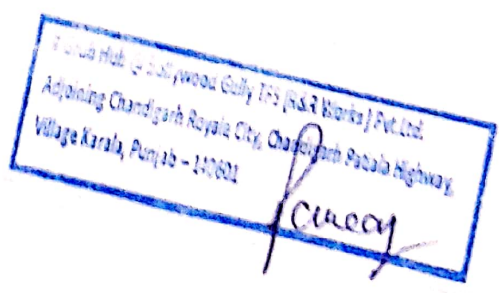 Hub @ Bollywood Gully TFS (R&R Works) Pvt.Ltd.
Adjoining Chandigarh Royale City, Chandigarh Patiala Highway,
Village Karala, Punjab – 140601